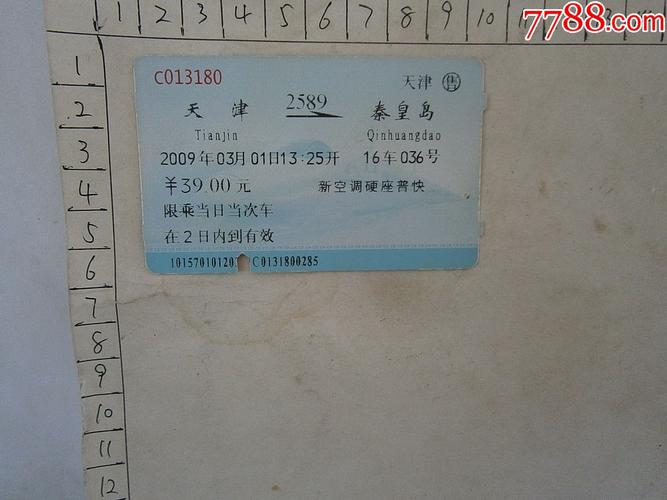 7788.com
1 2 3 4 5 6 7 8 9 10
1
2
3
4
5
6
7
8
9
10
11
12
C013180 天津 售
天津 2589 秦皇岛
Tianjin Qinhuangdao
2009年03月01日13:25开 16车036号
￥39.00元 新空调硬座普快
限乘当日当次车
在2日内到有效
1015701012 C0131800285